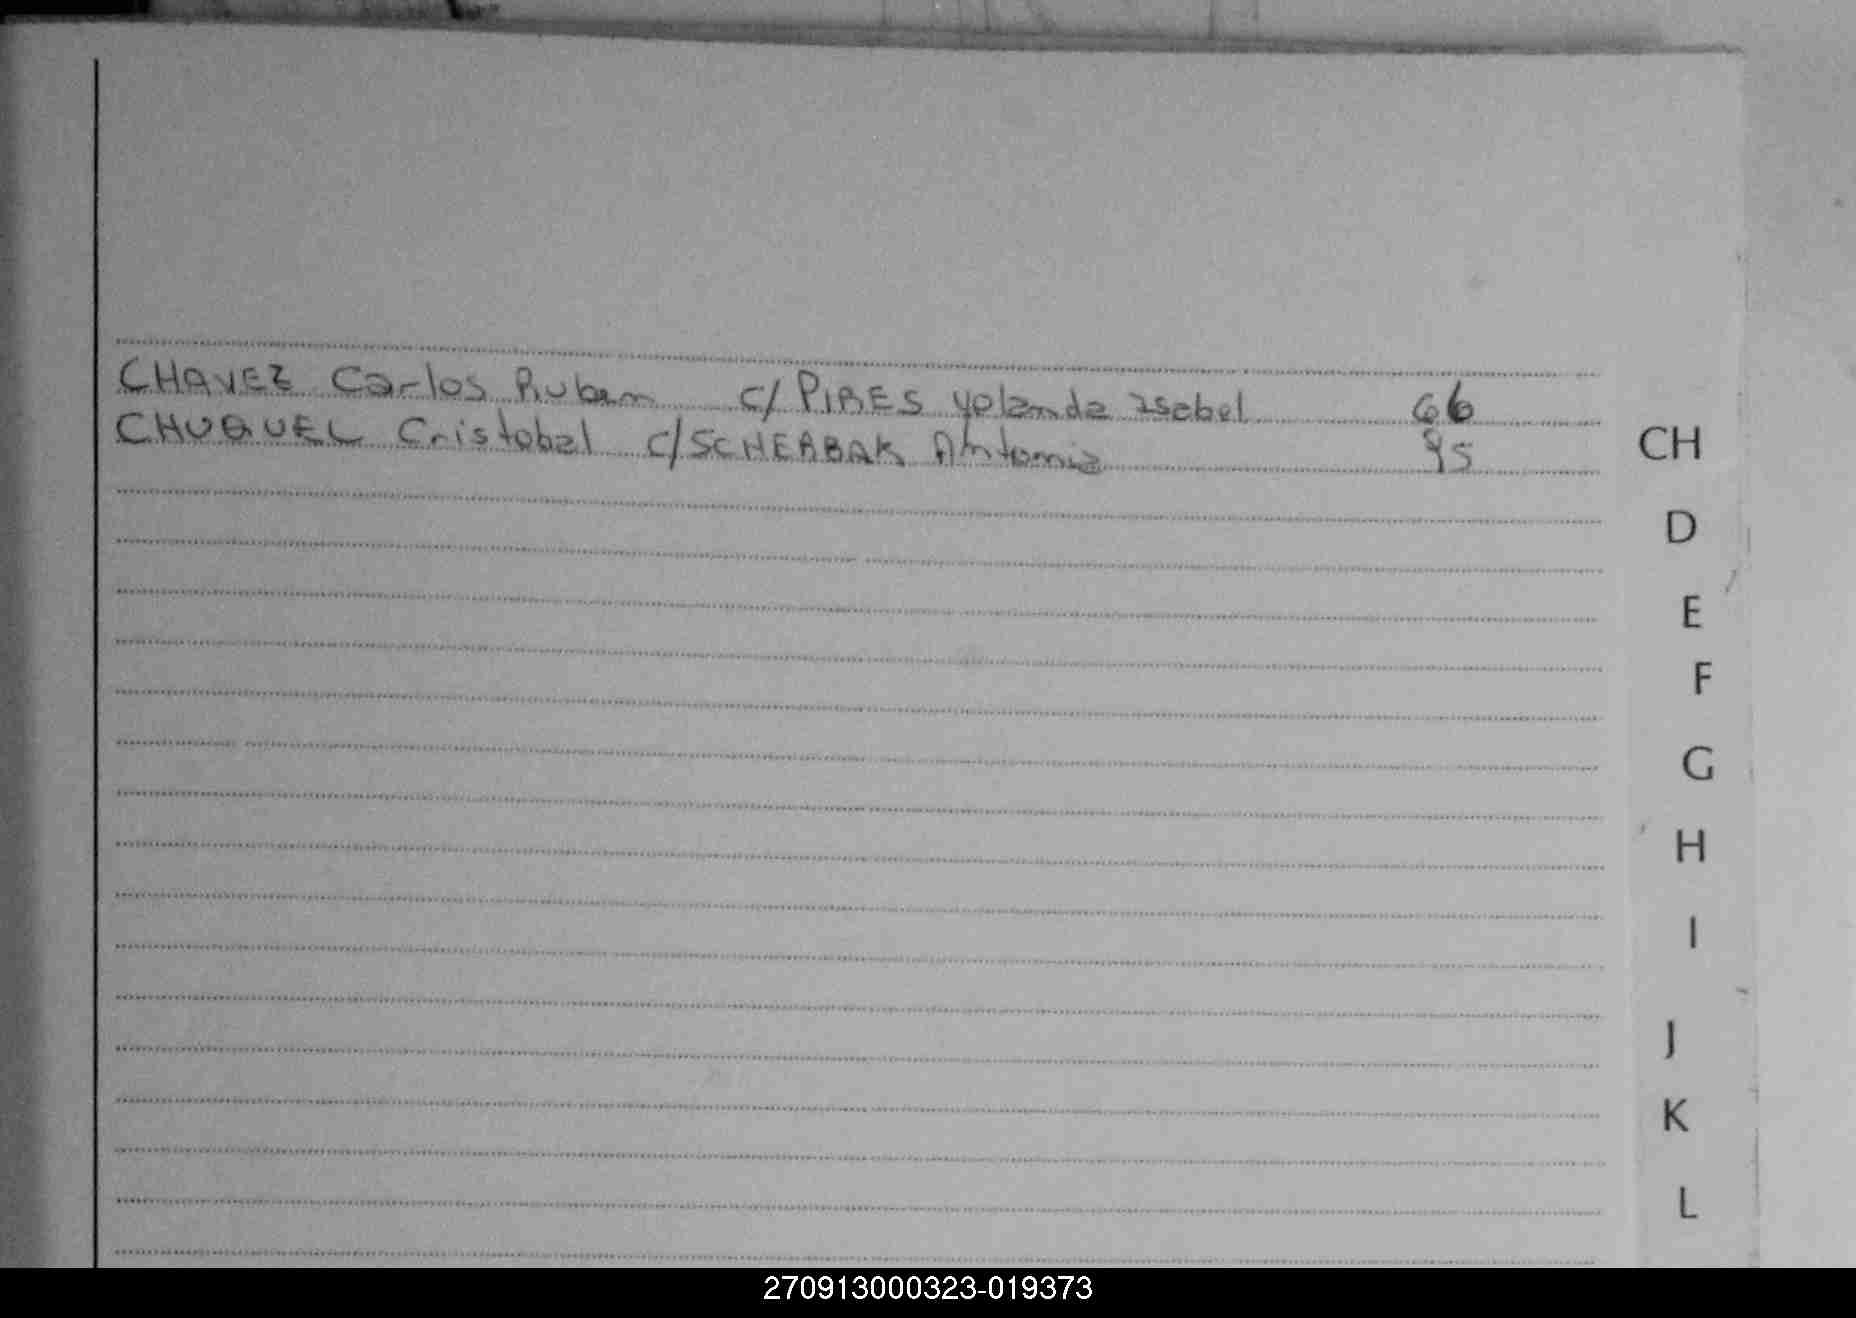 CHAVEZ Carlos Ruben c/ PIRES Yolanda Isabel 66
CHUQUEL Cristobal c/ SCHERBAK Antonia 95
CH
D
E
F
G
H
I
J
K
L
270913000323-019373